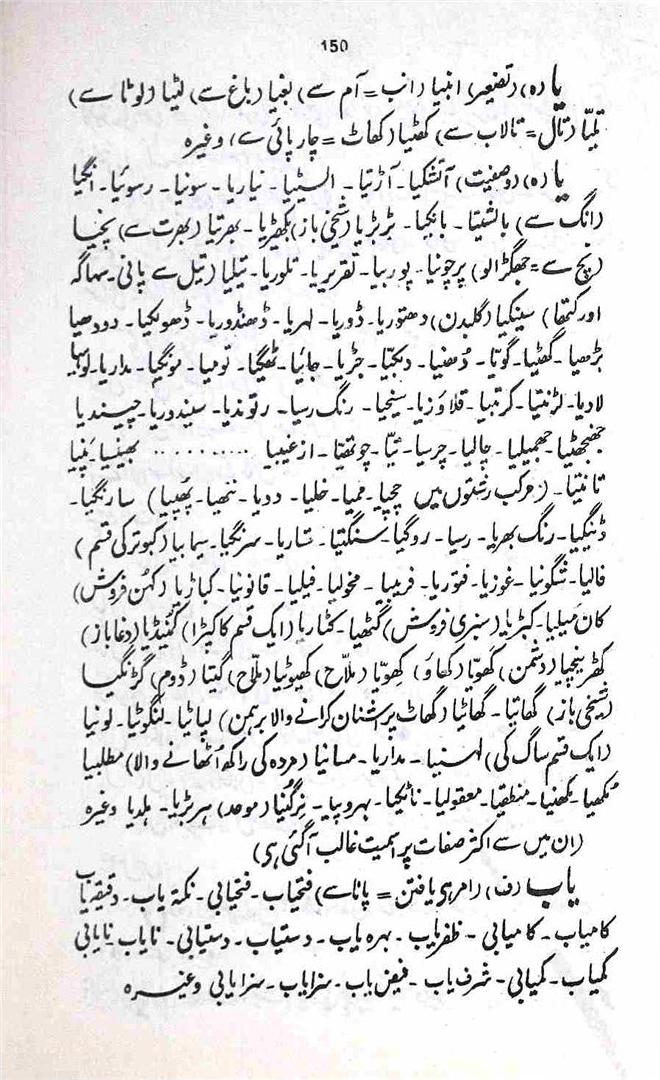 150
یا (ہ) (تصغیر) انبیا (انب = آم سے) بغیا (باغ سے) لٹیا (لوٹا سے)
تلیّا (تال = تالاب سے) کھٹیا (کھاٹ = چارپائی سے) وغیرہ
یا (ہ) (وصفیت) آتشکیا۔ آڑتیا۔ السیٹیا۔ نیاریا۔ سونیا۔ رسوئیا۔ انگیا
(انگ سے) بالشتیا۔ بانکیا۔ بڑبڑیا (شیخی باز) بکھڑیا۔ بھرتیا (بھرت سے) پنچیا
(پنچ سے = جھگڑالو) پرچونیا۔ پوربیا۔ تقریریا۔ تلوریا۔ تیلیا (تیل سے پانی۔ سہاگہ
اور کتھا) سینکیا (گلبدن) دھتوریا۔ ڈوریا۔ لہریا۔ ڈھنڈوریا۔ ڈھولکیا۔ دودھیا
بڑھیا۔ گھٹیا۔ گویّا۔ دُھنیا۔ دبکیّا۔ جڑیا۔ جائیا۔ ٹھگیا۔ تومیا۔ مونگیا۔ مداریا۔ لوبیا
لادیا۔ لڑنتیا۔ کرتبیا۔ قلاوَزیا۔ سنیچیا۔ رنگ رسیا۔ رتوندیا۔ سیندوریا۔ چیندیا
جھنجھٹیا۔ جھمیلیا۔ چالیا۔ چرسیا۔ تیّا۔ چوتھیّا۔ ازغیبیا .......... بھینسیا۔ بَنیا
تانتیا۔ (مرکب رشتوں میں چچیا۔ ممیا۔ خلیا۔ ددیا۔ ننھیا۔ پھپیا) سارنگیا۔
ڈینگیا۔ رنگ بھریا۔ رسیا۔ روگیا۔ سنگتیا۔ ستاریا۔ سرنگیا۔ سیمابیا (کبوتر کی قسم)
فالیا۔ شگونیا۔ غوزیا۔ فتوریا۔ فریبیا۔ مخولیا۔ فیلیا۔ قانونیا۔ کباڑیا (کہن فروش)
کان میلیا۔ کبڑیا (سبزی فروش) گٹھیا۔ کٹاریا (ایک قسم کا کپڑا) کنیڈیا (دغاباز)
کھڑپینچیا (دشمن) کھویّا (کھاؤ) کھِویّا (ملّاح) کھیوٹیا (ملّاح) گیتا (ڈوم) گڑنگیا
(شیخی باز) گھاتیا۔ گھاٹیا (گھاٹ پر اشنان کرانے والا برہمن) لپاٹیا۔ لنگوٹیا۔ لونیا
(ایک قسم ساگ کی) لہنیا۔ مداریا۔ مسانیا (مردہ کی راکھ اُٹھانے والا) مطلبیا
مُکھیا۔ مکھنیا۔ منطقیا۔ معقولیا۔ ناٹکیا۔ بہروپیا۔ نِرگُنیا (موحد) ہربڑیا۔ ہلدیا وغیرہ
(ان میں سے اکثر صفات پر اسمیت غالب آگئی ہی)
یاب (ف) (امر ہی یافتن = پانا سے) فتحیاب۔ فتحیابی۔ نکتہ یاب۔ دقیقہ یاب
کامیاب۔ کامیابی۔ ظفریاب۔ بہرہ یاب۔ دستیاب۔ دستیابی۔ نایاب۔ نایابی
کمیاب۔ کمیابی۔ شرف یاب۔ فیض یاب۔ سزایاب۔ سزایابی وغیرہ